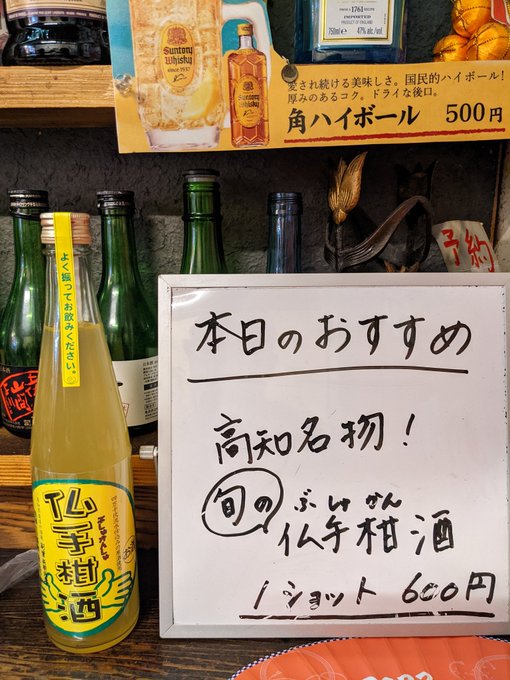 SUNTORY
WHISKY
since 1937
Suntory
Whisky
1761
IMPORTED
750ml
47% alc./vol.
愛され続ける美味しさ。国民的ハイボール!
厚みのあるコク。ドライな後口。
角ハイボール 500円
予約
よく振ってお飲みください。
仏手柑酒
ぶしゅかんしゅ
本日のおすすめ
高知名物!
旬の
ぶしゅかん
仏手柑酒
1ショット 600円